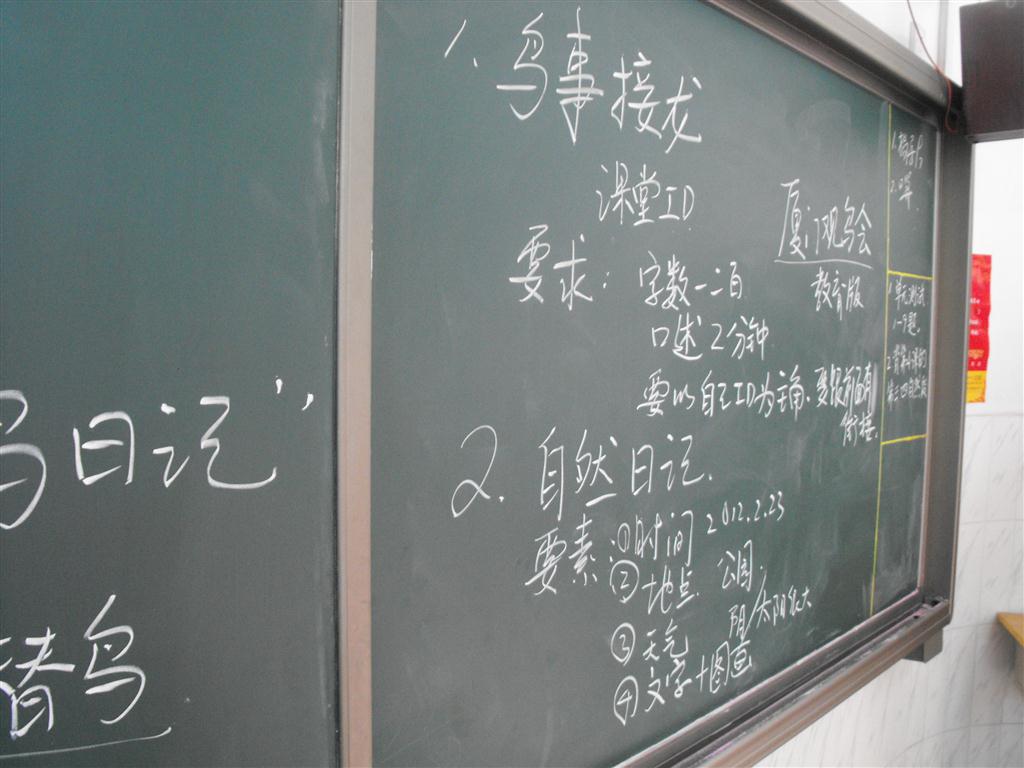 鸟日记”
鸟
1. 鸟事接龙
课堂ID
要求：字数一二百
口述2分钟
要以自己ID为主角，要跟前面有
衔接.
厦门观鸟会
教育版
2. 自然日记.
要素：①时间 2012.2.23
②地点 公园.
③天气 阴/太阳很大
④文字+图画
1. 单元测试